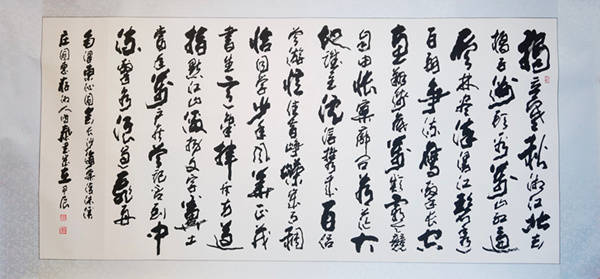 獨立寒秋湘江北去
橘子洲頭看萬山紅遍
層林盡染漫江碧透
百舸爭流鷹擊長空
魚翔淺底萬類霜天競
自由悵寥廓問蒼茫大
地誰主沉浮攜來百侶
曾遊憶往昔崢嶸歲月稠
恰同學少年風華正茂
書生意氣揮斥方遒
指點江山激揚文字糞土
當年萬戶侯曾記否到中
流擊水浪遏飛舟
澤東沁園春長沙